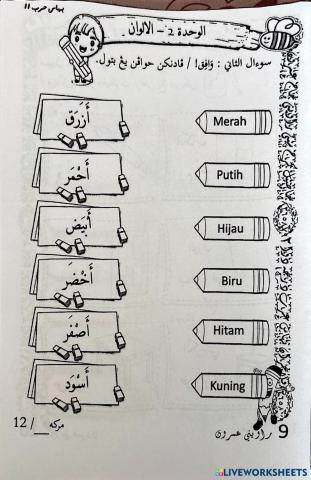 بهاس عرب 11
الوحدة 2 - الألوان
سوءال الثاني : وَافِق! / قادنكن حوافن يڠ بتول.
أَزْرَق
Merah
أَحْمَر
Putih
أَبْيَض
Hijau
أَخْضَر
Biru
أَصْفَر
Hitam
أَسْوَد
Kuning
مركه __ / 12
9
LIVEWORKSHEETS